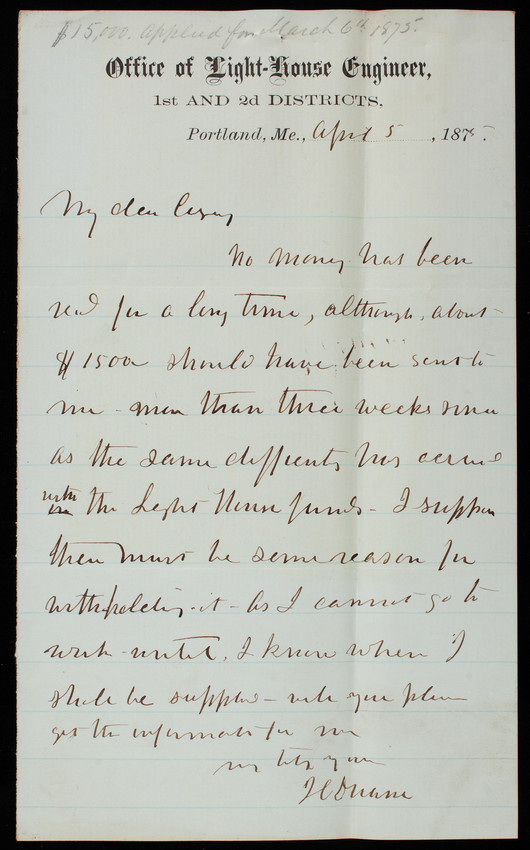 $15,000. applied for March 6th 1875.
Office of Light-House Engineer,
1st AND 2d DISTRICTS.
Portland, Me., April 5, 1875.
My dear Casey
No money has been
recd for a long time, although, about
$1500 should have been sent to
me - more than three weeks since
as the same difficulty has occurred
with the Light House funds - I suppose
there must be some reason for
withholding it - As I cannot go to
work until, I know when I
shall be supplied - will you please
get the information for me
yours
J C Duane